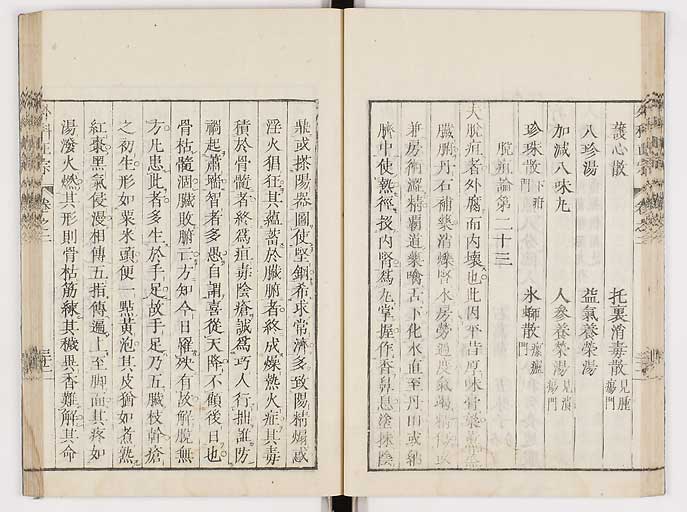 護心散　托裏消毒散 見腫瘍門
八珍湯　益氣養榮湯
加減八味丸　人參養榮湯 見潰瘍門
珍珠散 下疳門　氷螄散 瘰癧門
脫疽論第二十三
夫脫疽者外腐而内壞也此因平昔厚味膏粱熏蒸
臟腑丹石補藥消爍腎水房勞過度氣竭精傷
兼房術澀精覇道藥噙舌下化水直至丹田或納
臍中使熱徑投内腎爲九掌握作香鼻息塗抹陰
鼎或搽陽器圖使堅剛希求常濟多致陽精煽惑
淫火猖狂其蘊蓄於臟腑者終成燥熱火症其毒
積於骨髓者終爲疽毒陰瘡誠爲巧人行拙誰防
禍起蕭墻智者多愚自謂喜從天降不顧後日也
骨枯髓涸臟敗腑亡方知今日罹殃有故解脫無
方凡患此者多生於手足故手足乃五臟枝幹瘡
之初生形如粟米頭便一點黄泡其皮猶如煮熟
紅棗黑氣侵漫相傳五指傳遍上至脚面其疼如
湯潑火燃其形則骨枯筋練其穢異香難解其命
外科正宗　卷之二